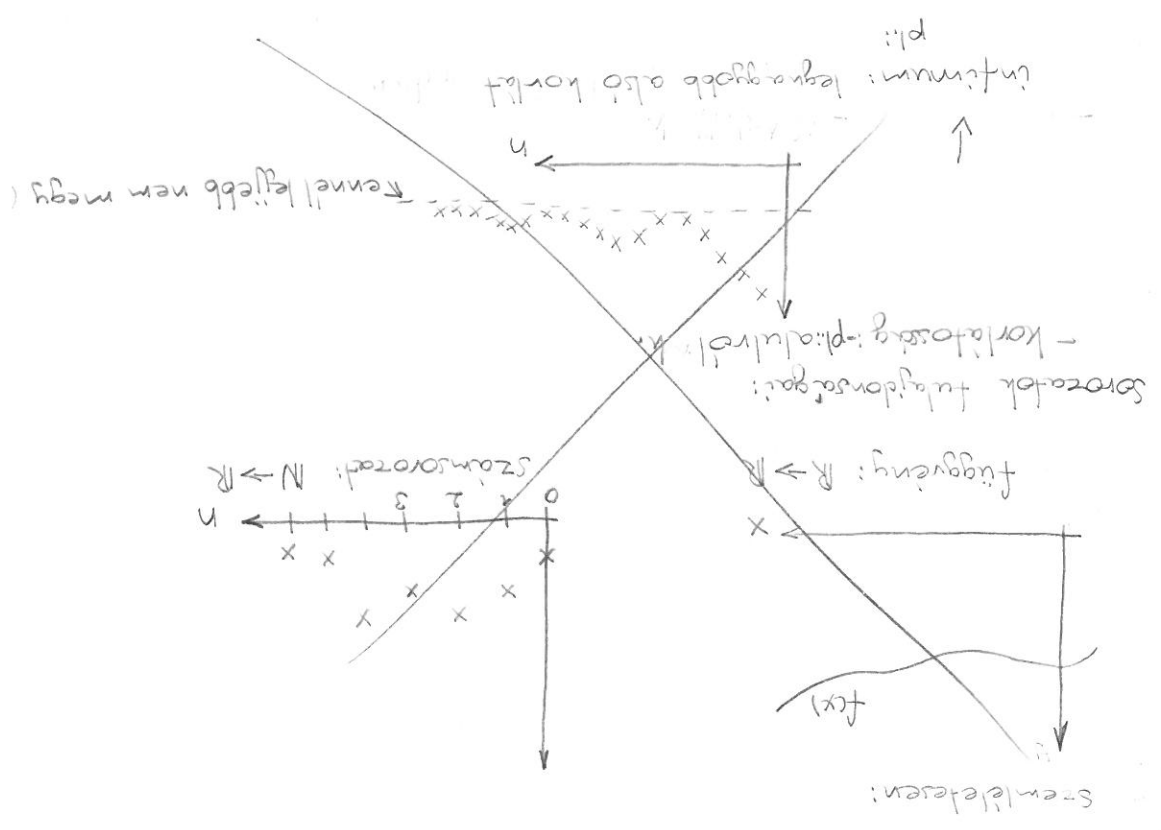 Szemléletesen:
f(x)
x
függvény: ℝ → ℝ
0 1 2 3
n
számsorozat: ℕ → ℝ
Sorozatok tulajdonságai:
- korlátosság: pl: alulról
ennél lejjebb nem megy
n
infimum: legnagyobb alsó korlát
pl.: